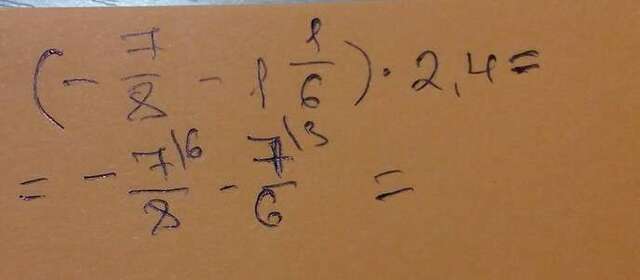 (- 7/8 - 1 1/6) · 2,4 =
= - 7\6/8 - 7\3/6 =